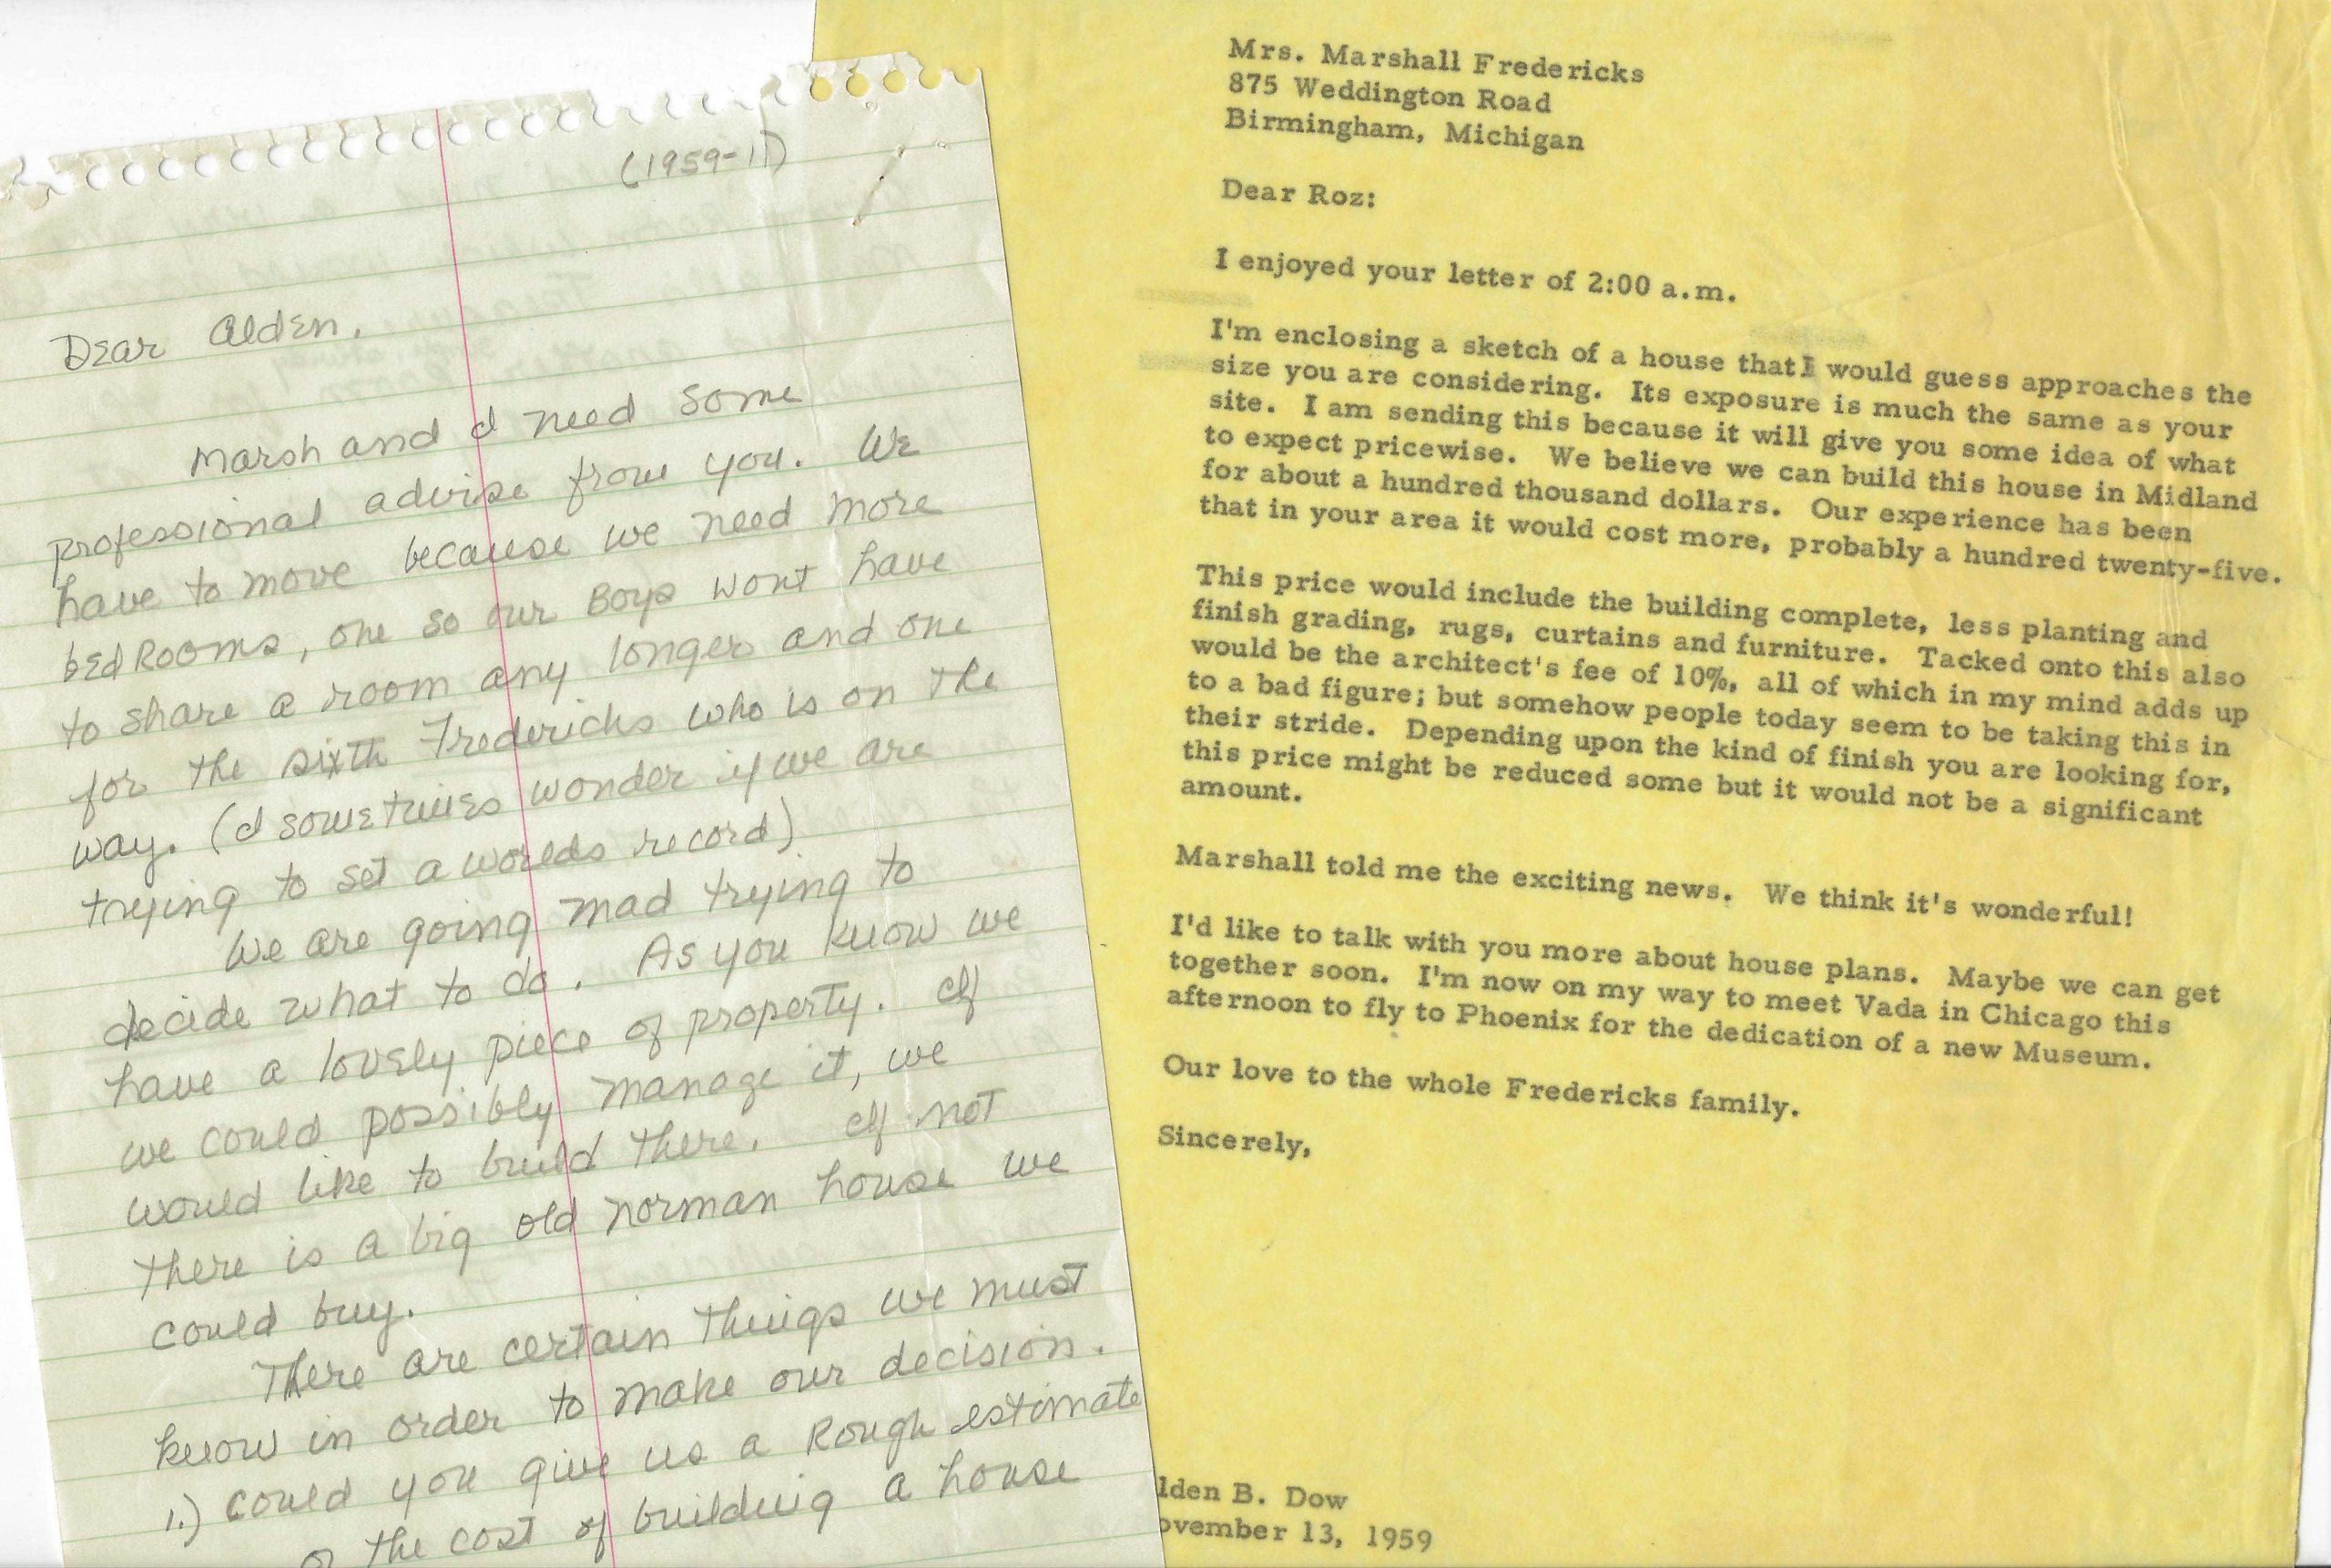 (1959-11)
Dear Alden.
Marsh and I need some
professional advise from you. We
have to move because we need more
bedRooms, one so our Boys wont have
to share a room any longer and one
for the sixth Fredericks who is on the
way. (I sometimes wonder if we are
trying to set a worlds record)
We are going mad trying to
decide what to do. As you know we
have a lovely piece of property. If
we could possibly manage it, we
would like to build there. If not
there is a big old norman house we
could buy.
There are certain things we must
know in order to make our decision.
1.) Could you give us a Rough estimate
the cost of building a house
Mrs. Marshall Fredericks
875 Weddington Road
Birmingham, Michigan
Dear Roz:
I enjoyed your letter of 2:00 a.m.
I'm enclosing a sketch of a house that I would guess approaches the
size you are considering. Its exposure is much the same as your
site. I am sending this because it will give you some idea of what
to expect pricewise. We believe we can build this house in Midland
for about a hundred thousand dollars. Our experience has been
that in your area it would cost more, probably a hundred twenty-five.
This price would include the building complete, less planting and
finish grading, rugs, curtains and furniture. Tacked onto this also
would be the architect's fee of 10%, all of which in my mind adds up
to a bad figure; but somehow people today seem to be taking this in
their stride. Depending upon the kind of finish you are looking for,
this price might be reduced some but it would not be a significant
amount.
Marshall told me the exciting news. We think it's wonderful!
I'd like to talk with you more about house plans. Maybe we can get
together soon. I'm now on my way to meet Vada in Chicago this
afternoon to fly to Phoenix for the dedication of a new Museum.
Our love to the whole Fredericks family.
Sincerely,
lden B. Dow
ovember 13, 1959